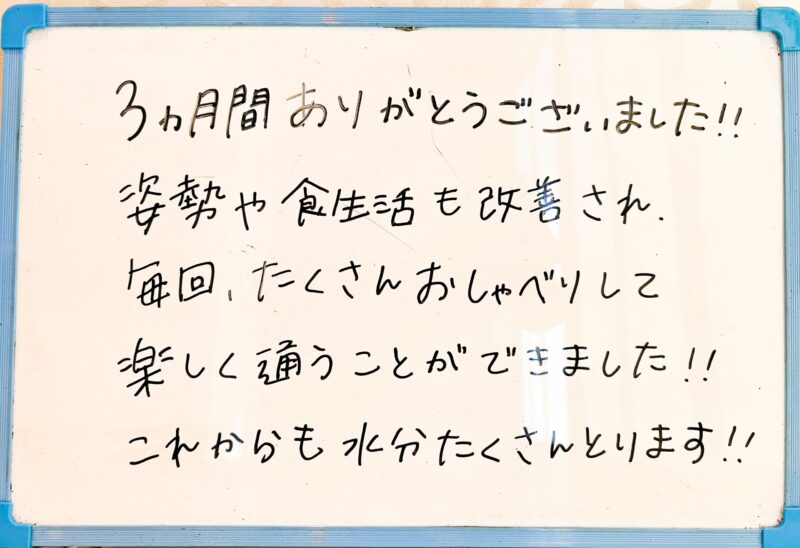 3ヵ月間ありがとうございました!!
姿勢や食生活も改善され、
毎回、たくさんおしゃべりして
楽しく通うことができました!!
これからも水分たくさんとります!!